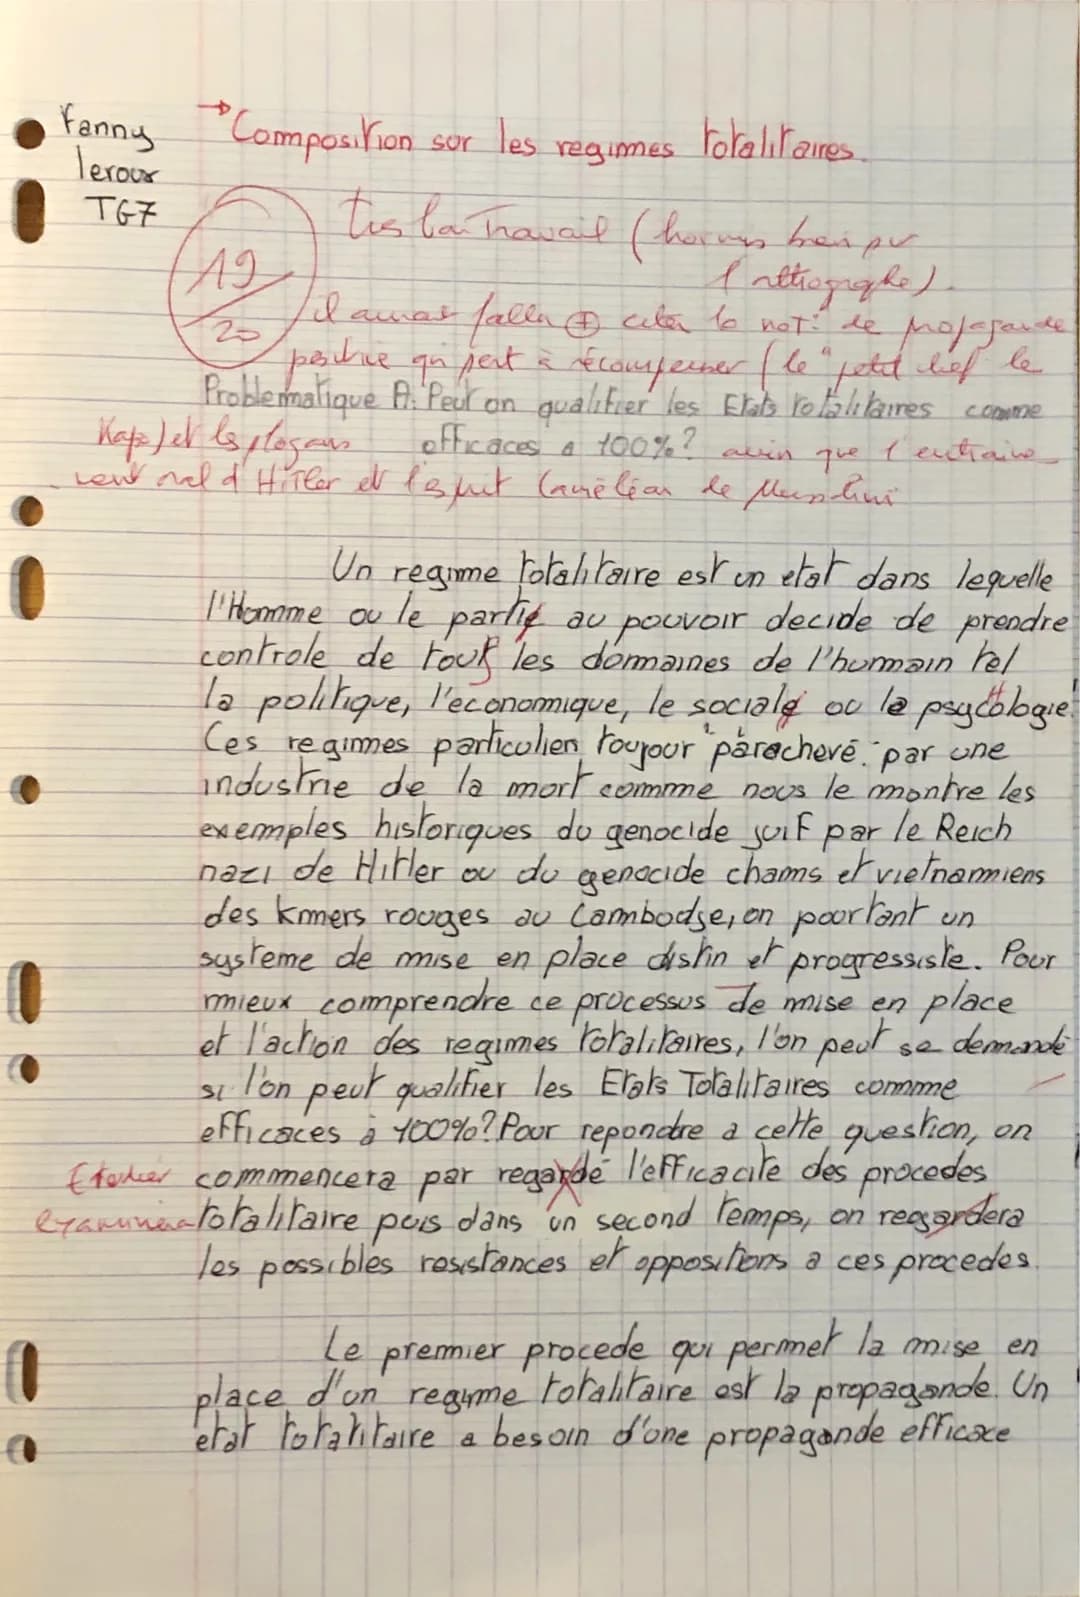 Fanny
leroux
TG7
→ Composition sur les regimes totalitaires.
19/20
très bon Travail (hormis bien sur
l'orthographe).
il aurait fallu ⊕ citer la not° de propagande
positive qui sert à récompenser (le "petit chef" le
Problematique A: Peut on qualifier les Etats totalitaires comme
Kapo) et les slogans
efficaces a 100%?
ainsi que l'entraine
ment oral d'Hitler et l'esprit Caméléon de Mussolini
Un regime totalitaire est un etat dans lequelle
l'Homme ou le partie au pouvoir decide de prendre
controle de tout les domaines de l'humain tel
la politique, l'economique, le sociale ou la psycologie.
h
Ces regimes particulien toujour parachevé par une
industrie de la mort comme nous le montre les
exemples historiques du genocide juif par le Reich
nazi de Hitler ou du genocide chams et vietnamiens
des kmers rouges au Cambodge, on pourtant un
systeme de mise en place distin et progressiste. Pour
mieux comprendre ce processus de mise en place
et l'action des regimes totalitaires, l'on peut se demandé
si l'on peut qualifier les Etats Totalitaires comme
efficaces à 100%? Pour repondre a cette question, on
Etudier
commencera par regardé l'efficacite des procedes
examinera
totalitaire puis dans un second temps, on reegardera
les possibles resistances et oppositions a ces procedes.
Le premier procede qui permet la mise en
place d'un regime totalitaire est la propagande. Un
etat totalitaire a besoin d'une propagande efficace